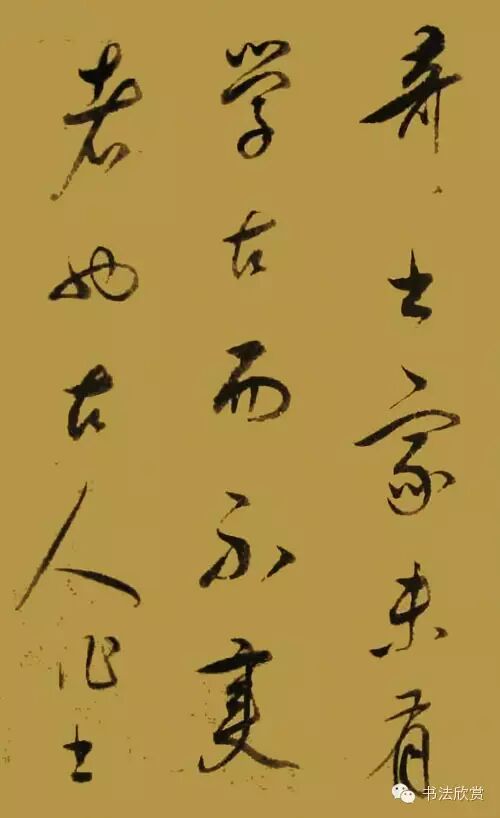 书家未有
学古而不变
者也古人作书
书法欣赏